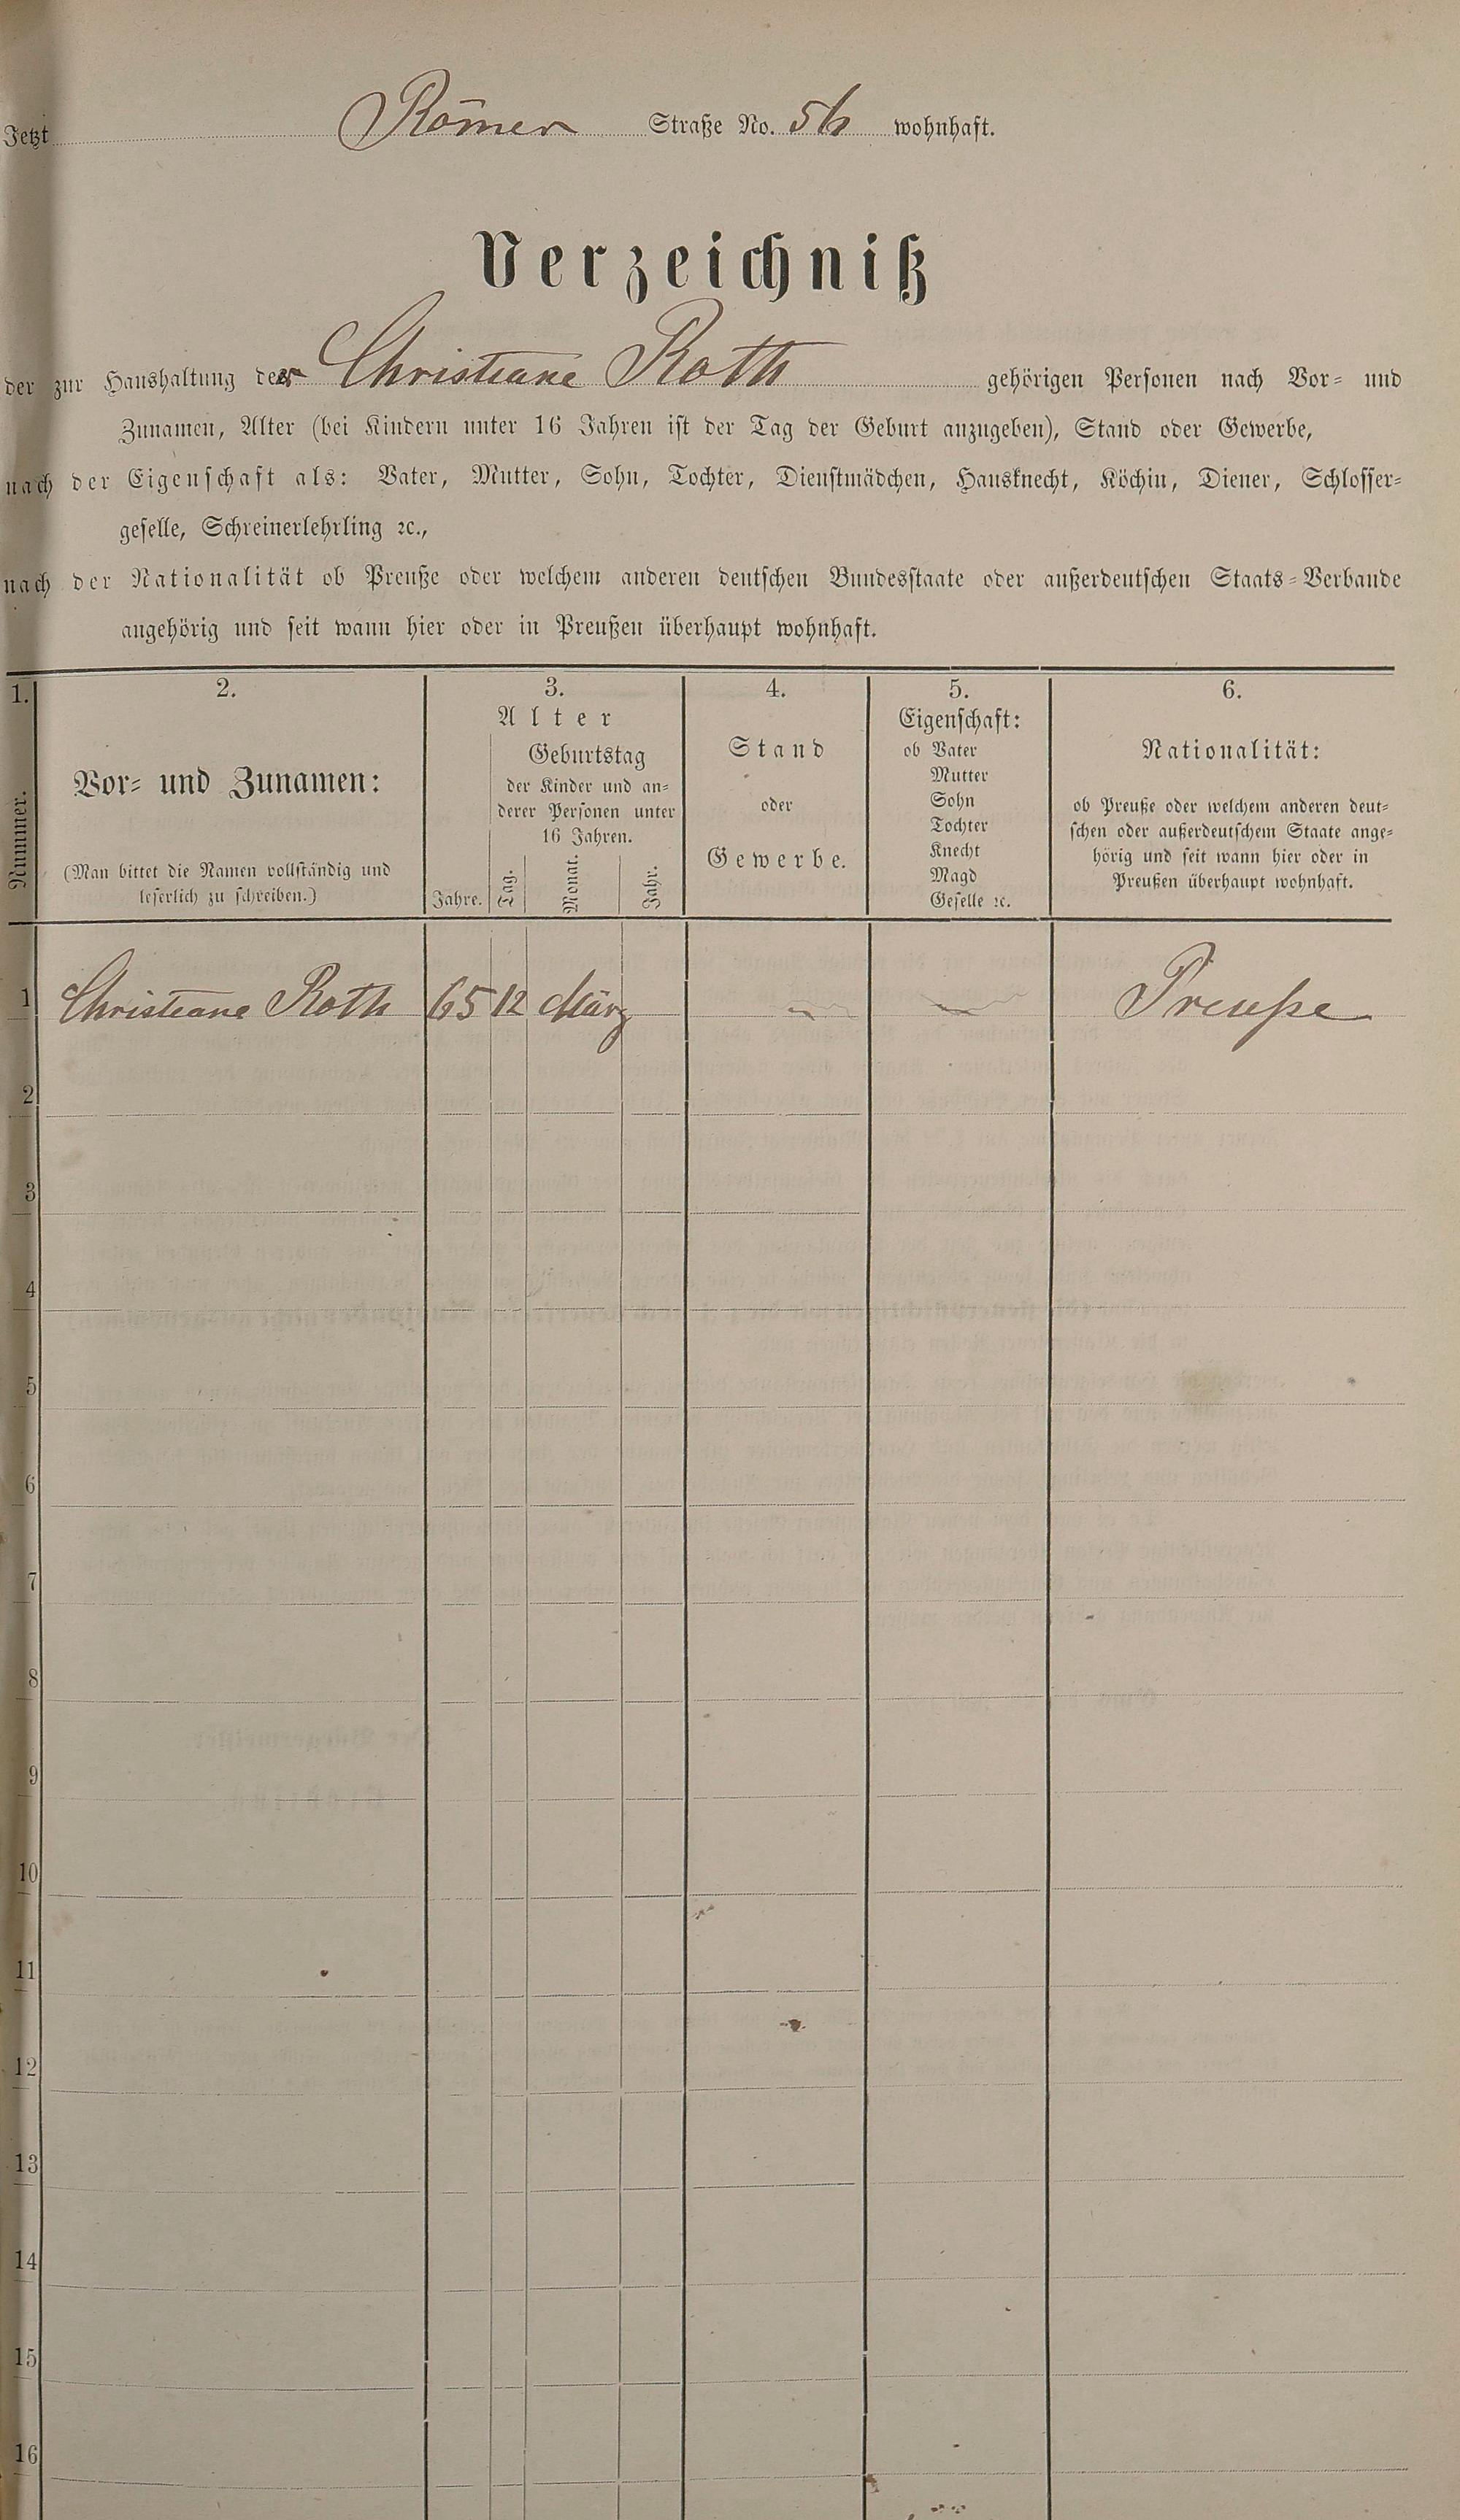 Jetzt Römer Straße No. 56 wohnhaft.
Verzeichniß
der zur Haushaltung der Christiane Roth gehörigen Personen nach Vor= und
Zunamen, Alter (bei Kindern unter 16 Jahren ist der Tag der Geburt anzugeben), Stand oder Gewerbe,
nach der Eigenschaft als: Vater, Mutter, Sohn, Tochter, Dienstmädchen, Hausknecht, Köchin, Diener, Schlosser=
geselle, Schreinerlehrling ꝛc.,
nach der Nationalität ob Preuße oder welchem anderen deutschen Bundesstaate oder außerdeutschen Staats=Verbande
angehörig und seit wann hier oder in Preußen überhaupt wohnhaft.
1.
Nummer.
2.
Vor= und Zunamen:
(Man bittet die Namen vollständig und
leserlich zu schreiben.)
3.
Alter
Geburtstag
der Kinder und an=
derer Personen unter
16 Jahren.
Jahre. Tag. Monat. Jahr.
4.
Stand
oder
Gewerbe.
5.
Eigenschaft:
ob Vater
Mutter
Sohn
Tochter
Knecht
Magd
Geselle ꝛc.
6.
Nationalität:
ob Preuße oder welchem anderen deut=
schen oder außerdeutschem Staate ange=
hörig und seit wann hier oder in
Preußen überhaupt wohnhaft.
1 Christiane Roth 65 12 März Preuße
2
3
4
5
6
7
8
9
10
11
12
13
14
15
16